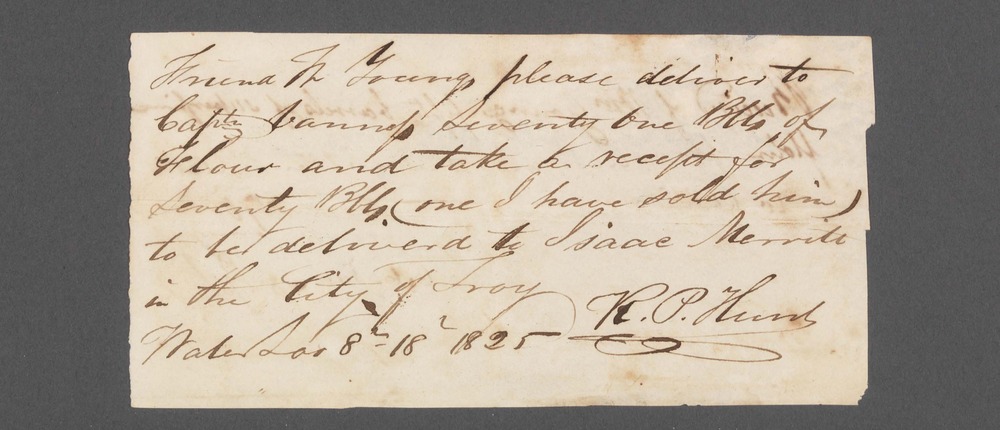 Friend W Young, please deliver to
Captn Seventy one Bbls of
Flour and take a recept for
Seventy Bbls (one I have sold him)
to be deliverd to Isaac Merritt
in the City of Troy
Waterloo 8m 18 1825 R. P. Hunt